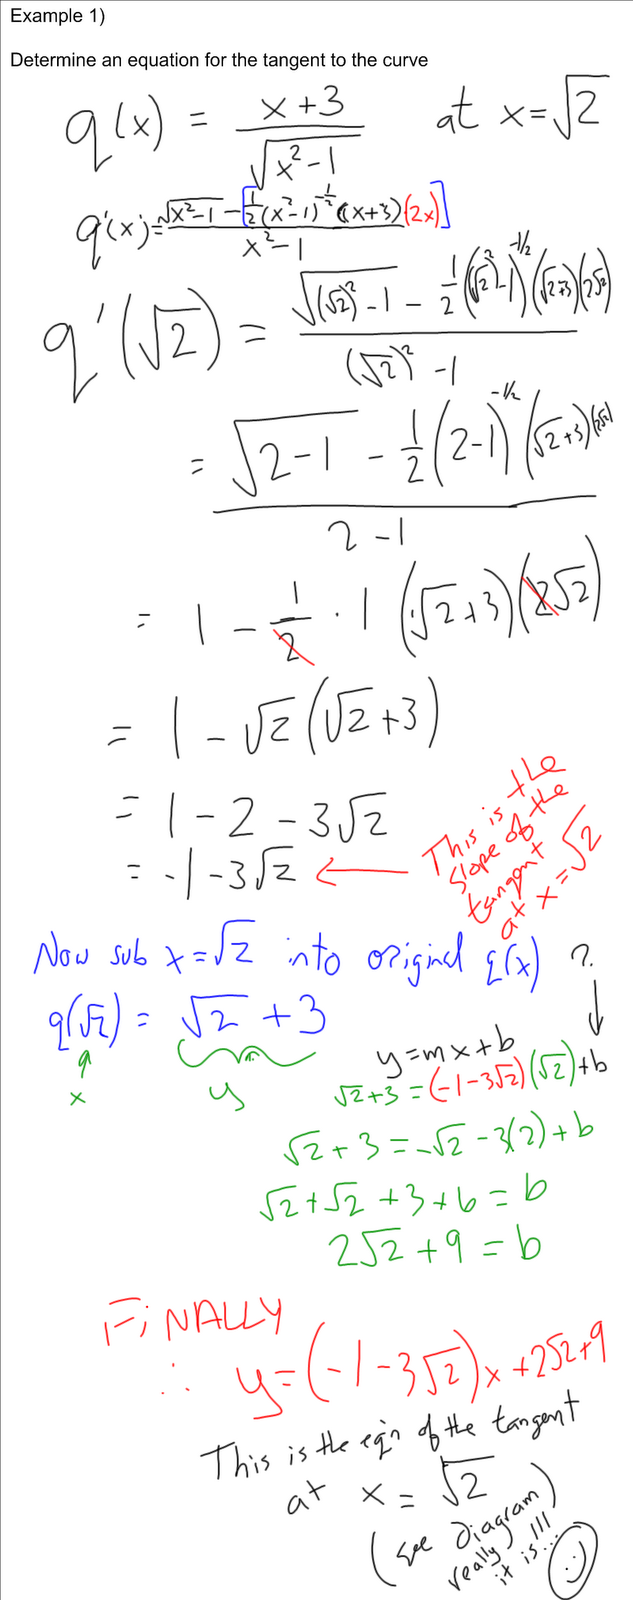 Example 1)
Determine an equation for the tangent to the curve
q(x) = (x+3)/√(x²-1) at x=√2
q'(x)=(√(x²-1) - [1/2(x²-1)^(-1/2)(x+3)(2x)])/(x²-1)
q'(√2) = (√((√2)²-1) - 1/2((√2)²-1)^(-1/2)(√2+3)(2√2))/((√2)²-1)
= (√(2-1) - 1/2(2-1)^(-1/2)(√2+3)(2√2))/(2-1)
= 1 - 1/2 · 1 (√2+3)(2√2)
= 1 - √2(√2+3)
= 1 - 2 - 3√2
= -1-3√2 ←
This is the
slope of the
tangent
at x=√2
Now sub x=√2 into original q(x) ?
q(√2) = √2 + 3
x
y
y=mx+b
√2+3=(-1-3√2)(√2)+b
√2+3=-√2-3(2)+b
√2+√2+3+6=b
2√2+9=b
FiNALLY
∴ y=(-1-3√2)x+2√2+9
This is the eq'n of the tangent
at x = √2
(see diagram)
really !!!
it is...